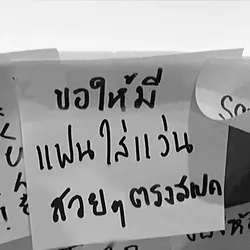 ขอให้มี
แฟนใส่แว่น
สวยๆ ตรงสเปค
So